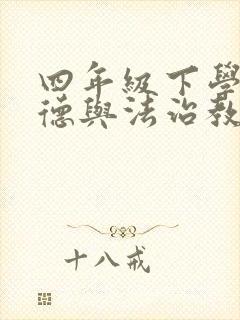 四年級下學
德與法治教
十八戒